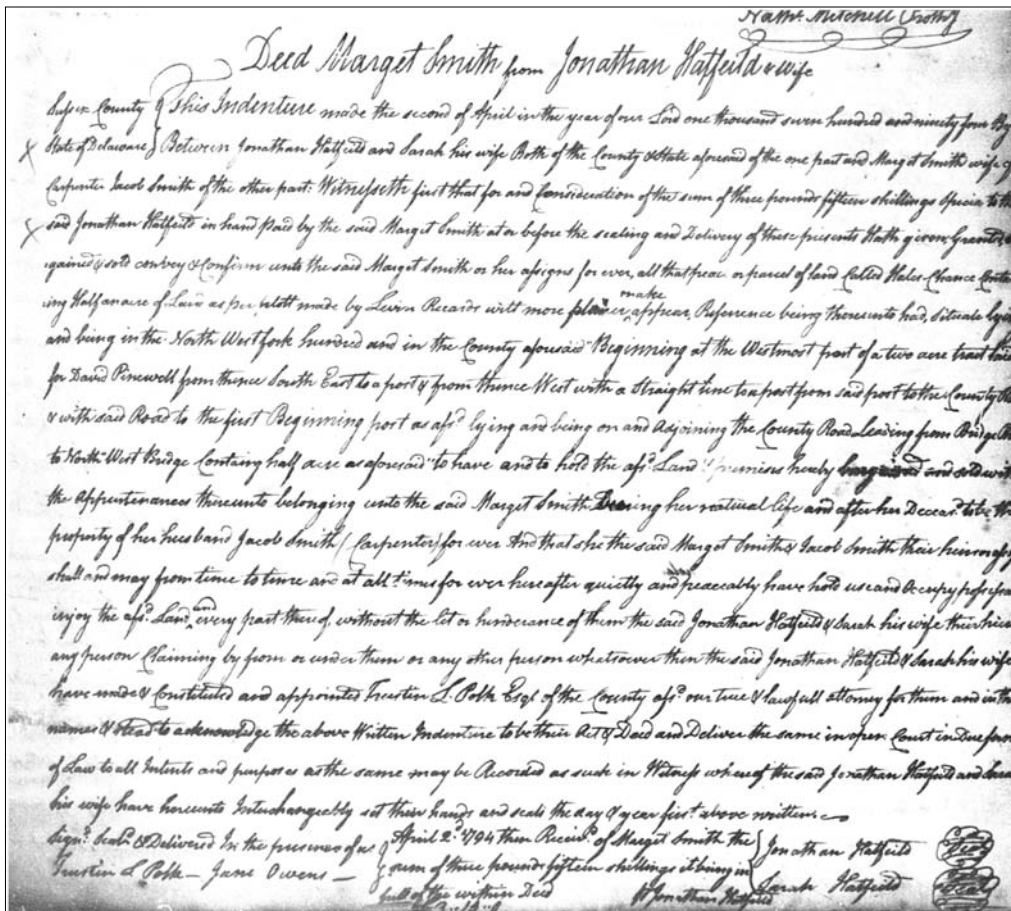 Nathl. Mitchell (Prothy)
Deed Marget Smith from Jonathan Hatfeild & wife
Sussex County } This Indenture made the second of April in the year of our Lord one thousand seven hundred and ninety four By &
State of Delaware } Between Jonathan Hatfeild and Sarah his wife Both of the County & State aforesaid of the one part and Marget Smith wife of
Carpenter Jacob Smith of the other part. Witnesseth first that for and Consideration of the sum of three pounds fifteen shillings Specia to the
said Jonathan Hatfeild in hand Paid by the said Marget Smith at or before the sealing and Delivery of these presents Hath given, Granted,
gained & sold convey & Confirm unto the said Marget Smith or her assigns for ever, all that peac or parcel of land Called Hales Chance Contai
ing Half an acre of Land as per plott made by Levin Records will more plainer make appear, Reference being thereunto had, Situate lying
and being in the North West fork hundred and in the County aforesaid Beginning at the Westmost post of a two acre tract laid
for David Pinewell from thence South East to a post & from thence West with a straight line to a post from said post to the County Road
& with said Road to the first Beginning post as afsd. lying and being on and Adjoining the County Road Leading from Bridge Br
to North West Bridge Containg half acre as aforesaid to have and to hold the afsd. Land & premises hereby bargained and sold with
the Appurtenances thereunto belonging unto the said Marget Smith During her natural life and after her Deceasd. to be the
property of her husband Jacob Smith (Carpenter) for ever And that she the said Marget Smith & Jacob Smith their heirs or assigns
shall and may from time to time and at all times for ever hereafter quietly and peaceably have hold use and Occupy possess and
injoy the afsd. Land and every part thereof, without the let or hinderance of them the said Jonathan Hatfeild & Sarah his wife their heirs
any person Claiming by from or under them or any other person whatsoever then the said Jonathan Hatfeild & Sarah his wife
have made & Constituted and appointed Trustin L. Polk Esqr. of the County afsd. our true & lawfull attorney for them and in their
names & stead to acknowledge the above Written Indenture to be their Act & Deed and Deliver the same in open Court in Due form
of Law to all Intents and purposes as the same may be Recorded as such in Witness whereof the said Jonathan Hatfeild and Sarah
his wife have hereunto Interchangeably set their hands and seals the day & year first above written
Signd. Seald. & Delivered In the presenes of us } April 2d. 1794 then Receivd. of Marget Smith the } Jonathan Hatfeild Seal
Trustin L Polk — Jane Owens — sum of three pounds fifteen shillings it being in } Sarah Hatfeild Seal
full of the within Deed Jonathan Hatfeild